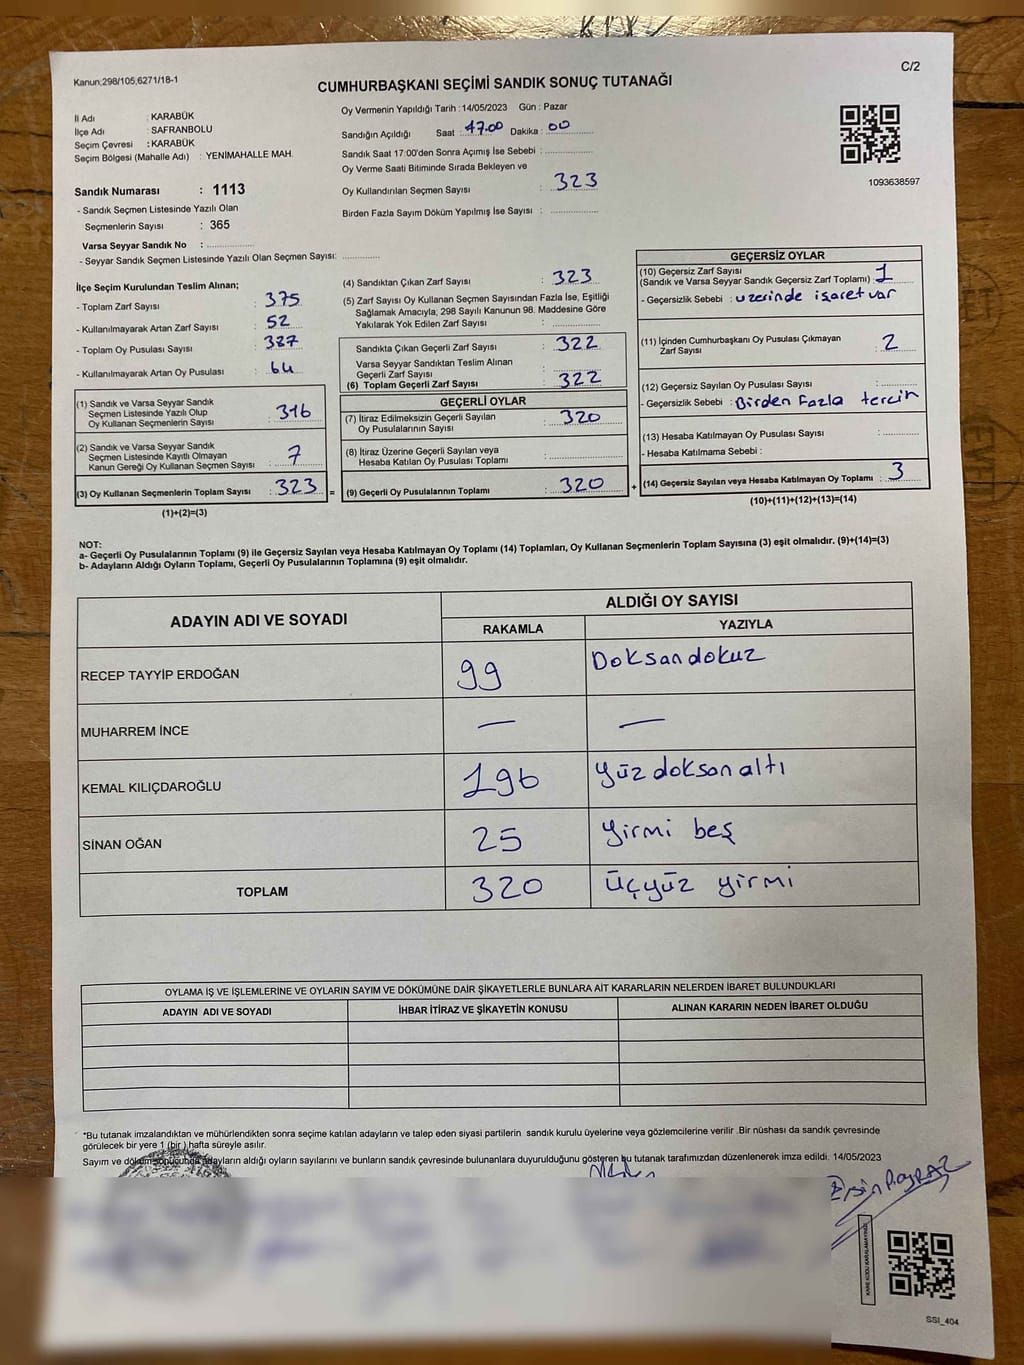 C/2
Kanun:298/105,6271/18-1
CUMHURBAŞKANI SEÇİMİ SANDIK SONUÇ TUTANAĞI
İl Adı : KARABÜK
İlçe Adı : SAFRANBOLU
Seçim Çevresi : KARABÜK
Seçim Bölgesi (Mahalle Adı) : YENİMAHALLE MAH.
Sandık Numarası : 1113
- Sandık Seçmen Listesinde Yazılı Olan
Seçmenlerin Sayısı : 365
Varsa Seyyar Sandık No : ................
- Seyyar Sandık Seçmen Listesinde Yazılı Olan Seçmen Sayısı: ............
Oy Vermenin Yapıldığı Tarih : 14/05/2023 Gün : Pazar
Sandığın Açıldığı Saat : 17.00 Dakika : 00
Sandık Saat 17:00'den Sonra Açımış İse Sebebi : ................
Oy Verme Saati Bitiminde Sırada Bekleyen ve
Oy Kullandırılan Seçmen Sayısı : 323
Birden Fazla Sayım Döküm Yapılmış İse Sayısı : ................
1093638597
İlçe Seçim Kurulundan Teslim Alınan;
- Toplam Zarf Sayısı : 375
- Kullanılmayarak Artan Zarf Sayısı : 52
- Toplam Oy Pusulası Sayısı : 387
- Kullanılmayarak Artan Oy Pusulası : 64
(1) Sandık ve Varsa Seyyar Sandık
Seçmen Listesinde Yazılı Olup
Oy Kullanan Seçmenlerin Sayısı : 316
(2) Sandık ve Varsa Seyyar Sandık
Seçmen Listesinde Kayıtlı Olmayan
Kanun Gereği Oy Kullanan Seçmen Sayısı : 7
(3) Oy Kullanan Seçmenlerin Toplam Sayısı : 323 =
(1)+(2)=(3)
(4) Sandıktan Çıkan Zarf Sayısı : 323
(5) Zarf Sayısı Oy Kullanan Seçmen Sayısından Fazla İse, Eşitliği
Sağlamak Amacıyla; 298 Sayılı Kanunun 98. Maddesine Göre
Yakılarak Yok Edilen Zarf Sayısı : ................
Sandıkta Çıkan Geçerli Zarf Sayısı : 322
Varsa Seyyar Sandıktan Teslim Alınan
Geçerli Zarf Sayısı : ................
(6) Toplam Geçerli Zarf Sayısı : 322
GEÇERLİ OYLAR
(7) İtiraz Edilmeksizin Geçerli Sayılan
Oy Pusulalarının Sayısı : 320
(8) İtiraz Üzerine Geçerli Sayılan veya
Hesaba Katılan Oy Pusulası Toplamı : ................
(9) Geçerli Oy Pusulalarının Toplamı : 320 +
GEÇERSİZ OYLAR
(10) Geçersiz Zarf Sayısı
(Sandık ve Varsa Seyyar Sandık Geçersiz Zarf Toplamı) : 1
- Geçersizlik Sebebi : üzerinde işaret var
(11) İçinden Cumhurbaşkanı Oy Pusulası Çıkmayan
Zarf Sayısı : 2
(12) Geçersiz Sayılan Oy Pusulası Sayısı : ............
- Geçersizlik Sebebi : Birden Fazla tercih
(13) Hesaba Katılmayan Oy Pusulası Sayısı : ............
- Hesaba Katılmama Sebebi :
(14) Geçersiz Sayılan veya Hesaba Katılmayan Oy Toplamı : 3
(10)+(11)+(12)+(13)=(14)
NOT:
a- Geçerli Oy Pusulalarının Toplamı (9) ile Geçersiz Sayılan veya Hesaba Katılmayan Oy Toplamı (14) Toplamları, Oy Kullanan Seçmenlerin Toplam Sayısına (3) eşit olmalıdır. (9)+(14)=(3)
b- Adayların Aldığı Oyların Toplamı, Geçerli Oy Pusulalarının Toplamına (9) eşit olmalıdır.
ADAYIN ADI VE SOYADI
ALDIĞI OY SAYISI
RAKAMLA YAZIYLA
RECEP TAYYİP ERDOĞAN 99 Doksandokuz
MUHARREM İNCE — —
KEMAL KILIÇDAROĞLU 196 yüz doksan altı
SİNAN OĞAN 25 yirmi beş
TOPLAM 320 üçyüz yirmi
OYLAMA İŞ VE İŞLEMLERİNE VE OYLARIN SAYIM VE DÖKÜMÜNE DAİR ŞİKAYETLERLE BUNLARA AİT KARARLARIN NELERDEN İBARET BULUNDUKLARI
ADAYIN ADI VE SOYADI İHBAR İTİRAZ VE ŞİKAYETİN KONUSU ALINAN KARARIN NEDEN İBARET OLDUĞU
*Bu tutanak imzalandıktan ve mühürlendikten sonra seçime katılan adayların ve talep eden siyasi partilerin sandık kurulu üyelerine veya gözlemcilerine verilir .Bir nüshası da sandık çevresinde
görülecek bir yere 1 (bir ) hafta süreyle asılır.
Sayım ve döküm sonucunda adayların aldığı oyların sayılarını ve bunların sandık çevresinde bulunanlara duyurulduğunu gösteren bu tutanak tarafımızdan düzenlenerek imza edildi. 14/05/2023
Ersin Poyraz
SSI_404